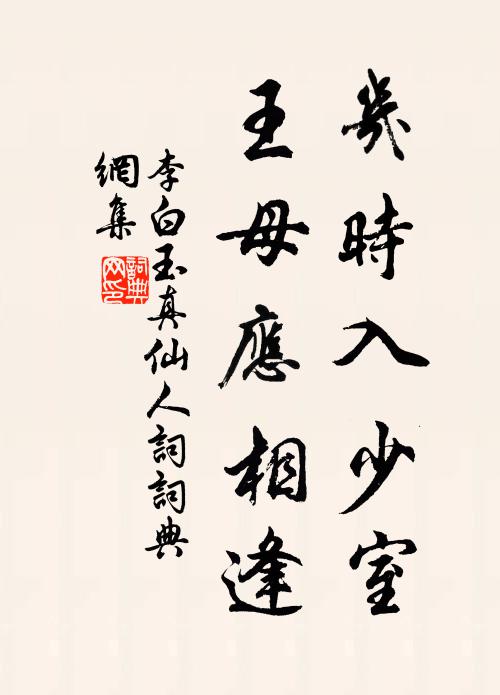 幾時入少室
王母應相逢
李白玉真仙人詞詞典
網集
詞典
网印